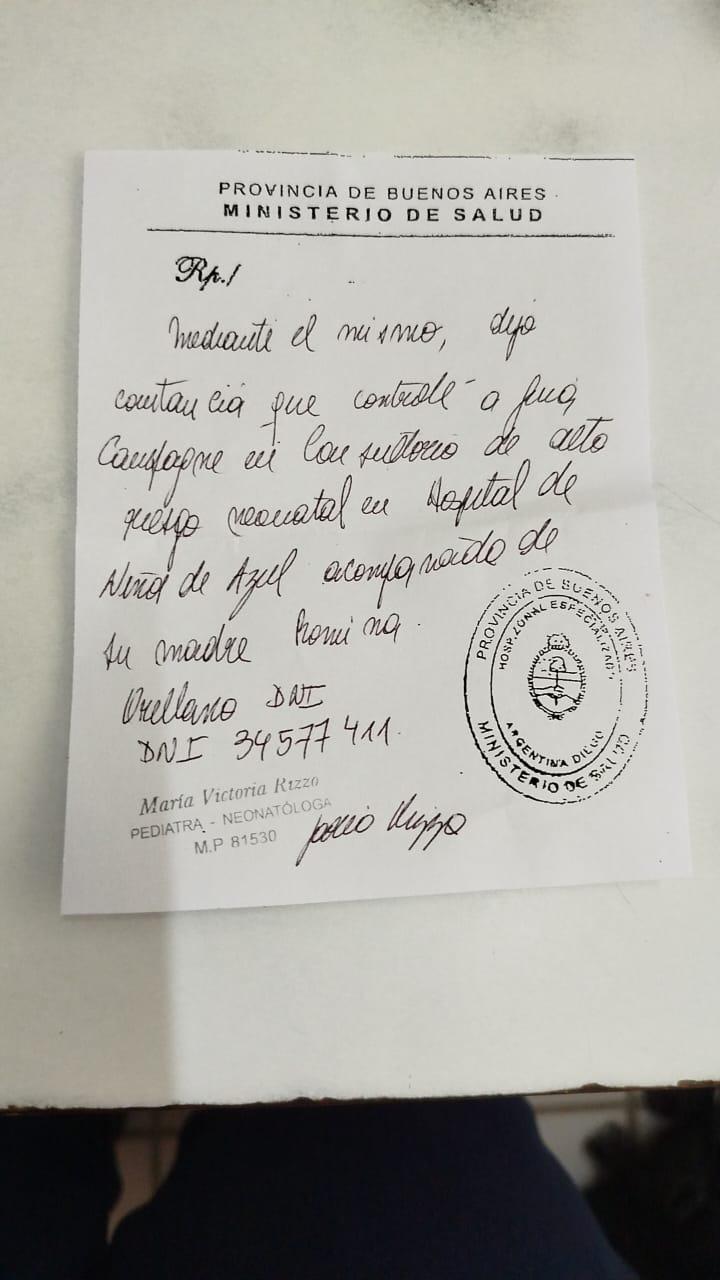 PROVINCIA DE BUENOS AIRES
MINISTERIO DE SALUD
Rp./
Mediante el mismo, dejo
constancia que controlé a
Campagne en Consultorio de alto
riesgo neonatal en Hospital de
Niños de Azul acompañada de
su madre Romina
Orellano DNI
DNI 34577411.
María Victoria Rizzo
PEDIATRA - NEONATÓLOGA
M.P 81530
Rizzo
PROVINCIA DE BUENOS AIRES
HOSP. ZONAL ESPECIALIZAD
ARGENTINA DIEGO
MINISTERIO DE SALUD